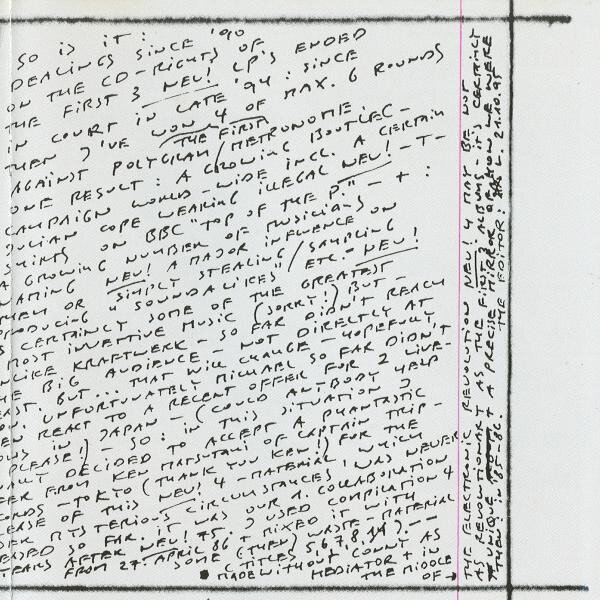 SO IS IT:
DEALINGS SINCE '90
ON THE CD-RIGHTS OF
THE FIRST 3 NEU! LP'S ENDED
IN COURT IN LATE '94: SINCE
THEN I'VE WON 4 OF MAX. 6 ROUNDS
THE FIRST
AGAINST POLYGRAM/METRONOME.
ONE RESULT: A GROWING BOOTLEG-
CAMPAIGN WORLD-WIDE INCL. A CERTAIN
JULIAN COPE WEARING ILLEGAL NEU!-T-
SHIRTS ON BBC "TOP OF THE P." - + :
A GROWING NUMBER OF MUSICIANS
NAMING NEU! A MAJOR INFLUENCE ON
THEM OR SIMPLY STEALING/SAMPLING
PRODUCING "SOUNDALIKES" ETC. - NEU!
IS CERTAINLY SOME OF THE GREATEST
MOST INVENTIVE MUSIC (SORRY!) BUT -
UNLIKE KRAFTWERK - SO FAR DIDN'T REACH
THE BIG AUDIENCE - NOT DIRECTLY AT
LEAST. BUT... THAT WILL CHANGE - HOPEFULLY
SOON. UNFORTUNATELY MICHAEL SO FAR DIDN'T
EVEN REACT TO A RECENT OFFER FOR 2 LIVE-
SHOWS IN JAPAN - (COULD ANYBODY HELP
PLEASE!) - SO: IN THIS SITUATION I
DECIDED TO ACCEPT A PHANTASTIC
OFFER FROM KEN MATSUTANI OF CAPTAIN TRIP-
RECORDS - TOKYO (THANK YOU KEN!) FOR THE
RELEASE OF THIS NEU! 4-MATERIAL, WHICH
UNDER MYSTERIOUS CIRCUMSTANCES, WAS NEVER
RELEASED SO FAR. IT WAS OUR 1. COLLABORATION
YEARS AFTER NEU! 75. I USED COMPILATION 4
FROM 27. APRIL 86 + MIXED IT WITH
SOME (THEN) WASTE-MATERIAL
(TITLES 5,6,7,8,14). --
MADE WITHOUT COUNT AS
MEDIATOR + IN
THE MIDDLE
OF →
THE ELECTRONIC REVOLUTION NEU! 4 MAY BE NOT
AS REVOLUTIONARY AS THE FIRST 3 ALBUMS - IT'S CERTAINLY
UNIQUE + A PRECISE MIRROR OF HOW WE WERE
THEN IN 85-86. THE EDITOR: 21.10.95